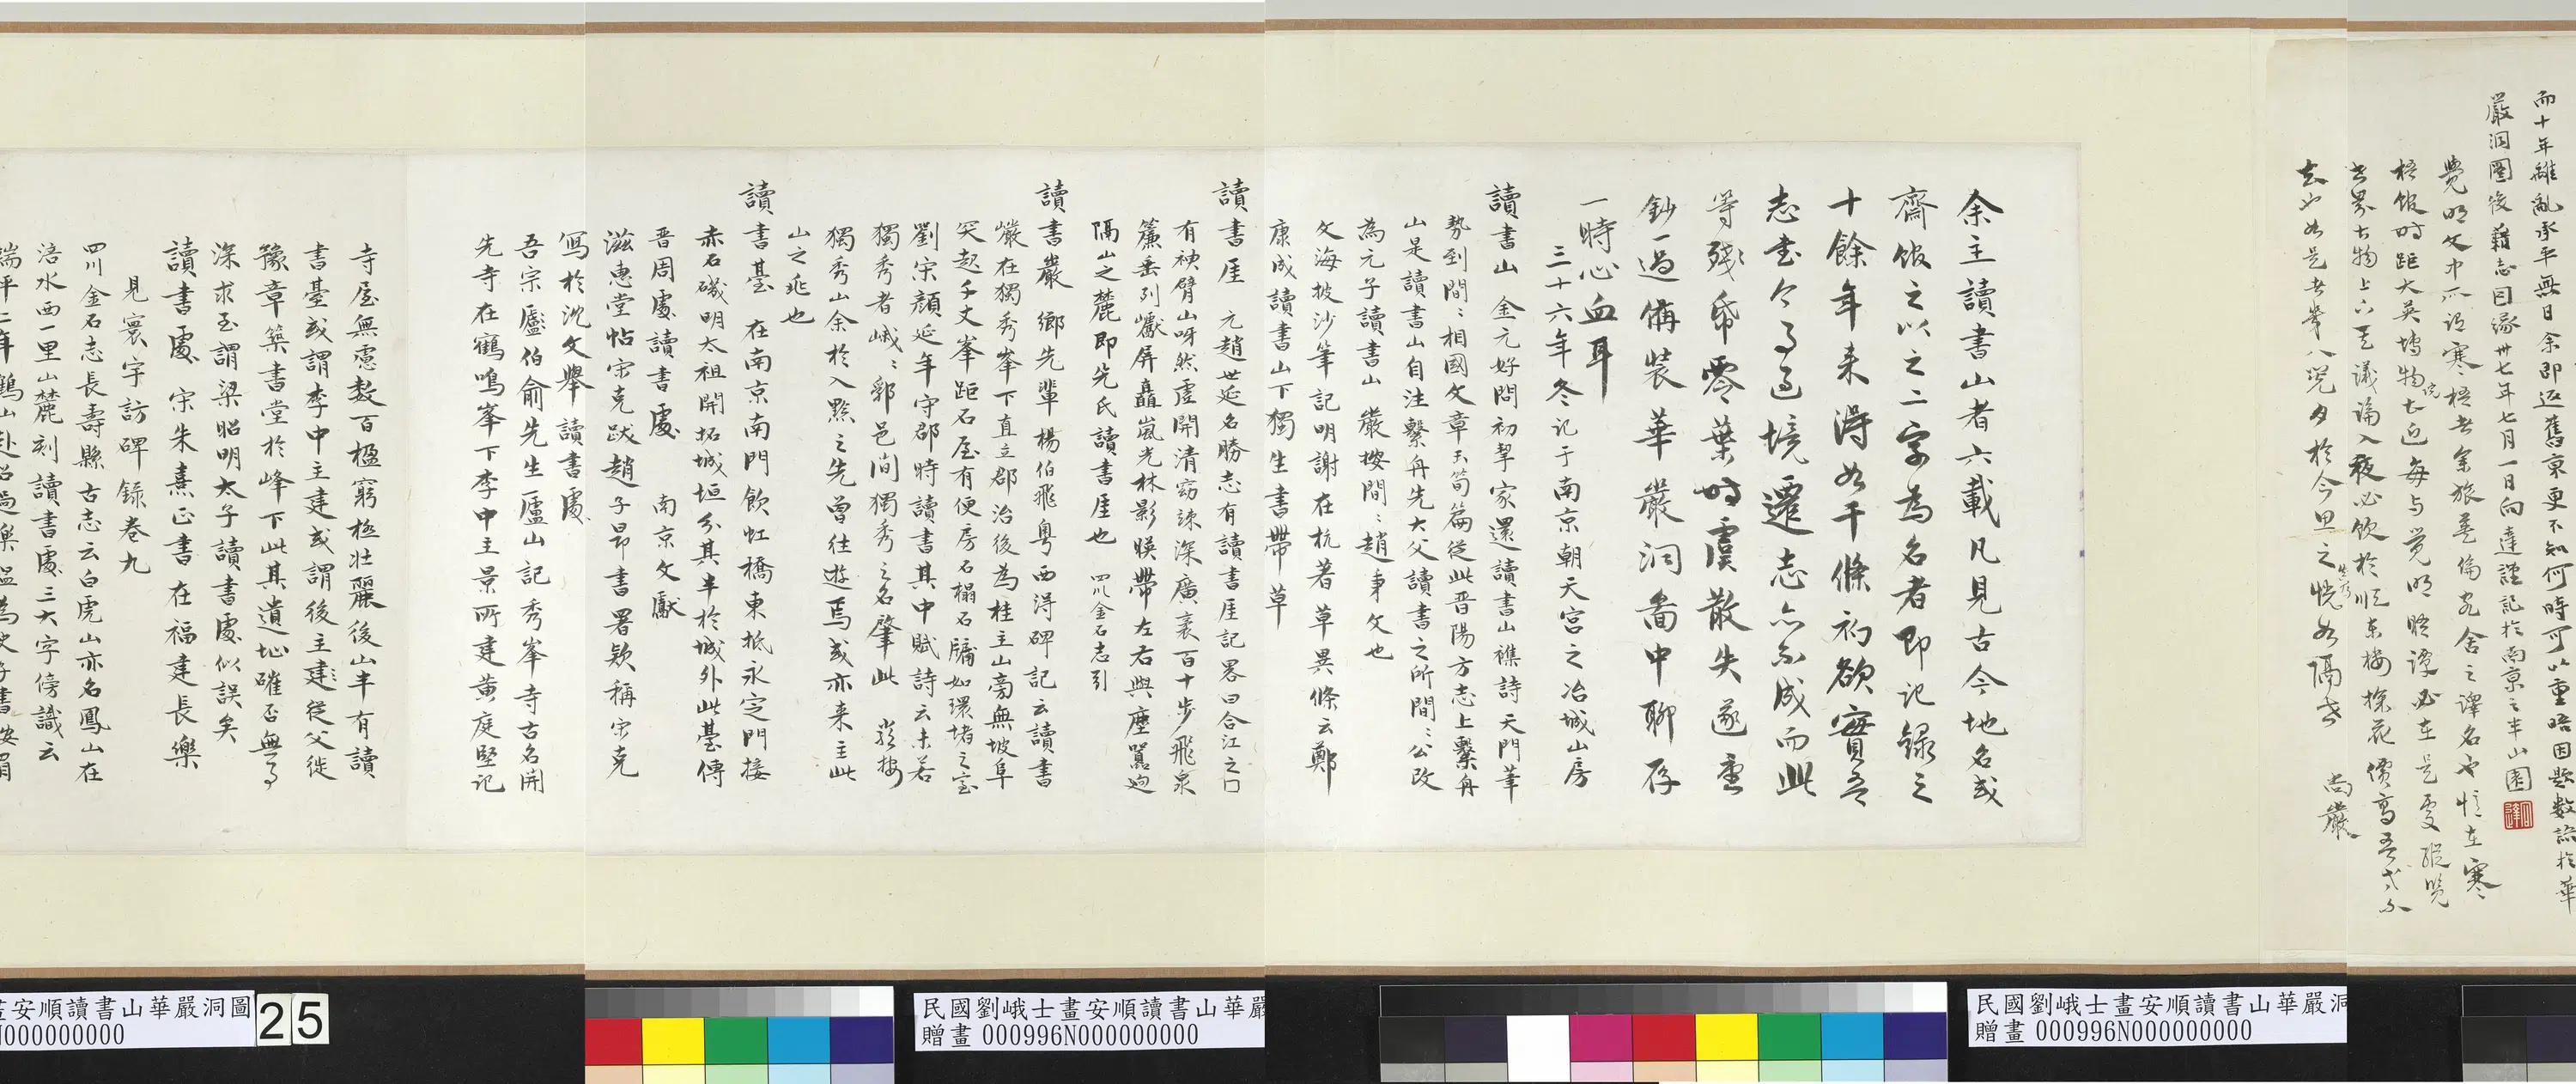 而十年離亂承平無日余即返舊京更不知何時可以重晤因題數語於華
嚴洞圖後藉志因緣卅七年七月一日向達謹記於南京之半山園
覺明文中所謂寒梧者余旅英倫寓舍之譯名也憶在寒
梧館時距大英博物院甚近每与覺明晤譚必在是處縱覽
尚嚴
余主讀書山者六載凡見古今地名或
齋館之以之二字為名者即記錄之
十餘年来得如干條初欲實吾
志書今乃過境遷志亦不成而此
等殘帋零葉時虞散失遂重
鈔一過備裝華嚴洞啚中聊存
一時心血耳
三十六年冬記于南京朝天宮之冶城山房
讀書山 金元好問初挈家還讀書山襍詩天門筆
勢到間〻相國文章玉筍篇從此晋陽方志上繫舟
山是讀書山自注繫舟先大父讀書之所間〻公改
為元子讀書山 嚴按間〻趙秉文也
文海披沙筆記明謝在杭著草異條云鄭
康成讀書山下獨生書帶草
讀書厓 元趙世延名勝志有讀書厓記畧曰合江之口
有袂臂山呀然虛開清窈竦深廣袤百十步飛泉
簾垂列巘屏矗嵐光林影暎帶左右與塵嚣逈
隔山之麓即先氏讀書厓也 四川金石志引
讀書巖 鄉先輩楊伯飛粤西得碑記云讀書
巖在獨秀峯下直立郡治後為桂主山旁無坡阜
突起千丈峯距石屋有便房石榻石牖如環堵之室
劉宋顔延年守郡時讀書其中賦詩云未若
獨秀者峨〻郛邑間獨秀之名肇此 嚴按
獨秀山余於入黔之先曾往遊焉或亦来主此
山之兆也
讀書臺 在南京南門飲虹橋東抵永定門接
赤石磯明太祖開拓城垣分其半於城外此臺傳
晋周處讀書處 南京文獻
滋惠堂帖宋克跋趙子昂書署欵稱宋克
寫於沈文舉讀書處
吾宗廬伯俞先生廬山記秀峯寺古名開
先寺在鶴鳴峯下李中主景所建黄庭堅記
寺屋無慮数百楹窮極壮麗後山半有讀
書臺或謂李中主建或謂後主建從父徙
豫章築書堂於峰下此其遺址確否無可
深求至謂梁昭明太子讀書處似誤矣
讀書處 宋朱熹正書 在福建長樂
見寰宇訪碑録卷九
四川金石志長壽縣古志云白虎山亦名鳳山在
涪水西一里山麓刻讀書處三大字傍識云
民國劉峨士畫安順讀書山華嚴洞
贈畫 000996N000000000
民國劉峨士畫安順讀書山華嚴
贈畫 000996N000000000
畫安順讀書山華嚴洞圖
N000000000
25